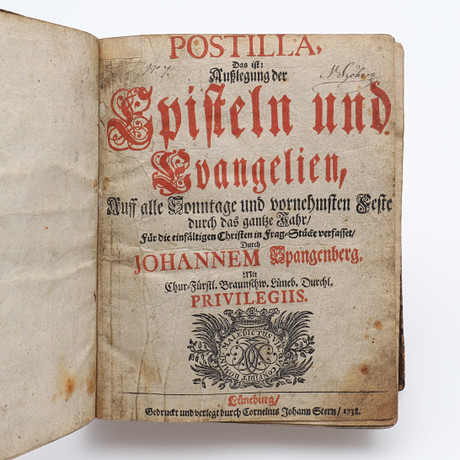 POSTILLA,
Das ist:
Außlegung der
Episteln und
Evangelien,
Auff alle Sonntage und vornehmsten Feste
durch das gantze Jahr/
Für die einfältigen Christen in Frag-Stücke verfasset/
Durch
JOHANNEM Spangenberg.
Mit
Chur-Fürstl. Braunschw. Lüneb. Durchl.
PRIVILEGIIS.
Lüneburg/
Gedruckt und verlegt durch Cornelius Johann Stern/ 1738.